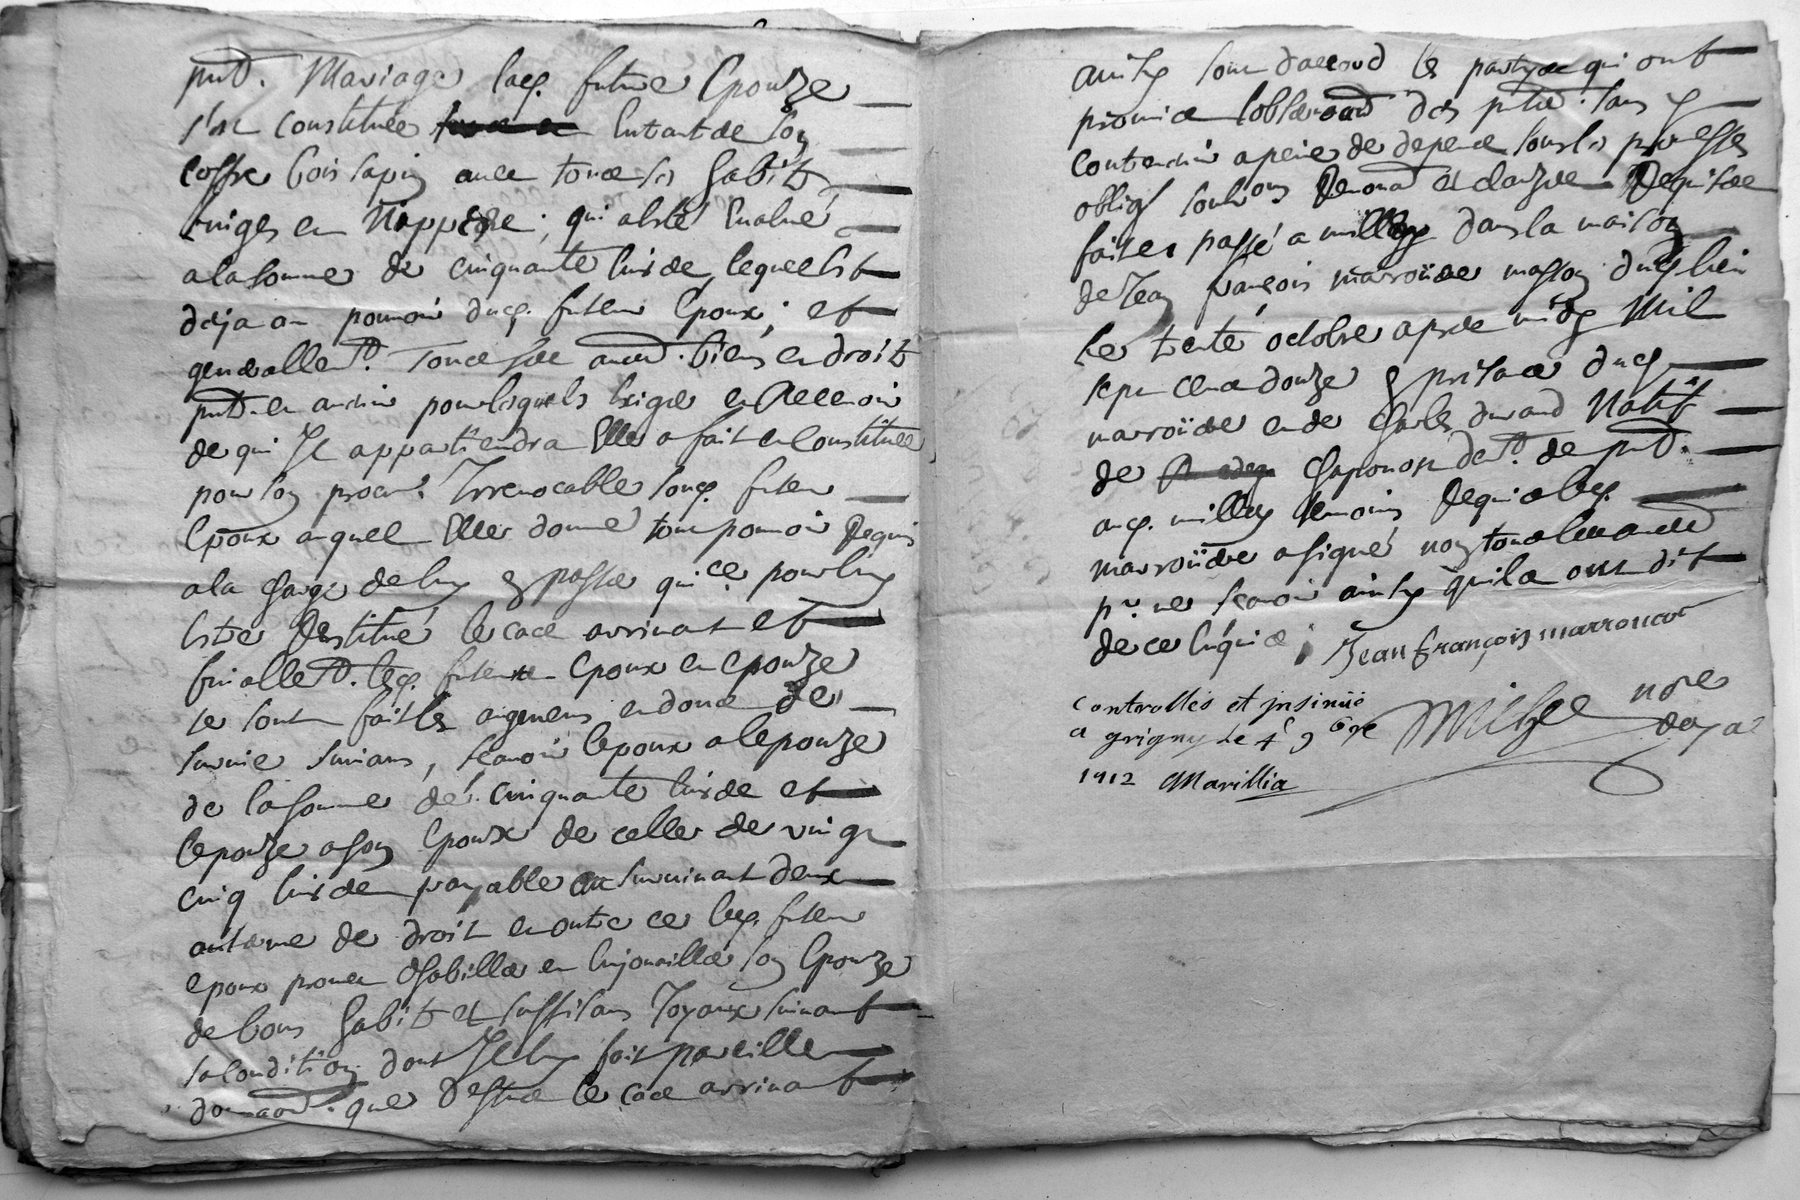 pnt. Mariage lad. future Epouze
s'est constituée Un tant de son
coffre bois sapin avec tous ses habits
linges en Nippes ; qui a esté Evalué
a la somme de cinquante livres, lequel est
deja au pouvoir dud. futeur Epoux ; et
generallemt. Tous ses autres biens en droits
pnts. en avenir pour lesquels Exiger en Recevoir
de qui Il appartiendra Elle a fait en Constitue
pour son procur. Irrevocable sond. futeur
Epoux auquel Elle donne tout pouvoir Requis
a la charge de luy passer quice. pour luy
Estre Restitué le cas arrivant et
finallemt. lesd. futeur Epoux en epouze
se sont faits les augmens en dons de
survie suivans, scavoir lepoux a lepouze
de la somme de cinquante livres et
lepouze a son Epoux de celle de vingt
cinq livres payable au survivant deux
de droit en outre ce led. futeur
epoux promet d'habiller en Enjouailler son Epouze
de bons habits et suffisans Joyaux suivant
sa condition dont Il luy fait pareille
que d'estre le cas arrivant
ainsy sont d'accord les partyes qui ont
promis lobserver des ptes. sans y
contrevenir a peine de depens sous les promesses
oblig. soub on Renond et clauzes Requises
fait et passé a millery dans la maison
de Jean françois marroüer masson dud. lieu
le trente octobre apres midy Mil
sept cens douze presence dud.
marroüer en de charles durand Natif
de Chaponost dt. de pnt.
aud. millery temoins Requis led.
marroüer a signé non tous les autres
pr. ne scavoir ainsy qu'ils ont dit
de ce Enquis ; Jean françois marrouer
controllés et insinüé
a grigny le 4e 9bre
1712 Marillia